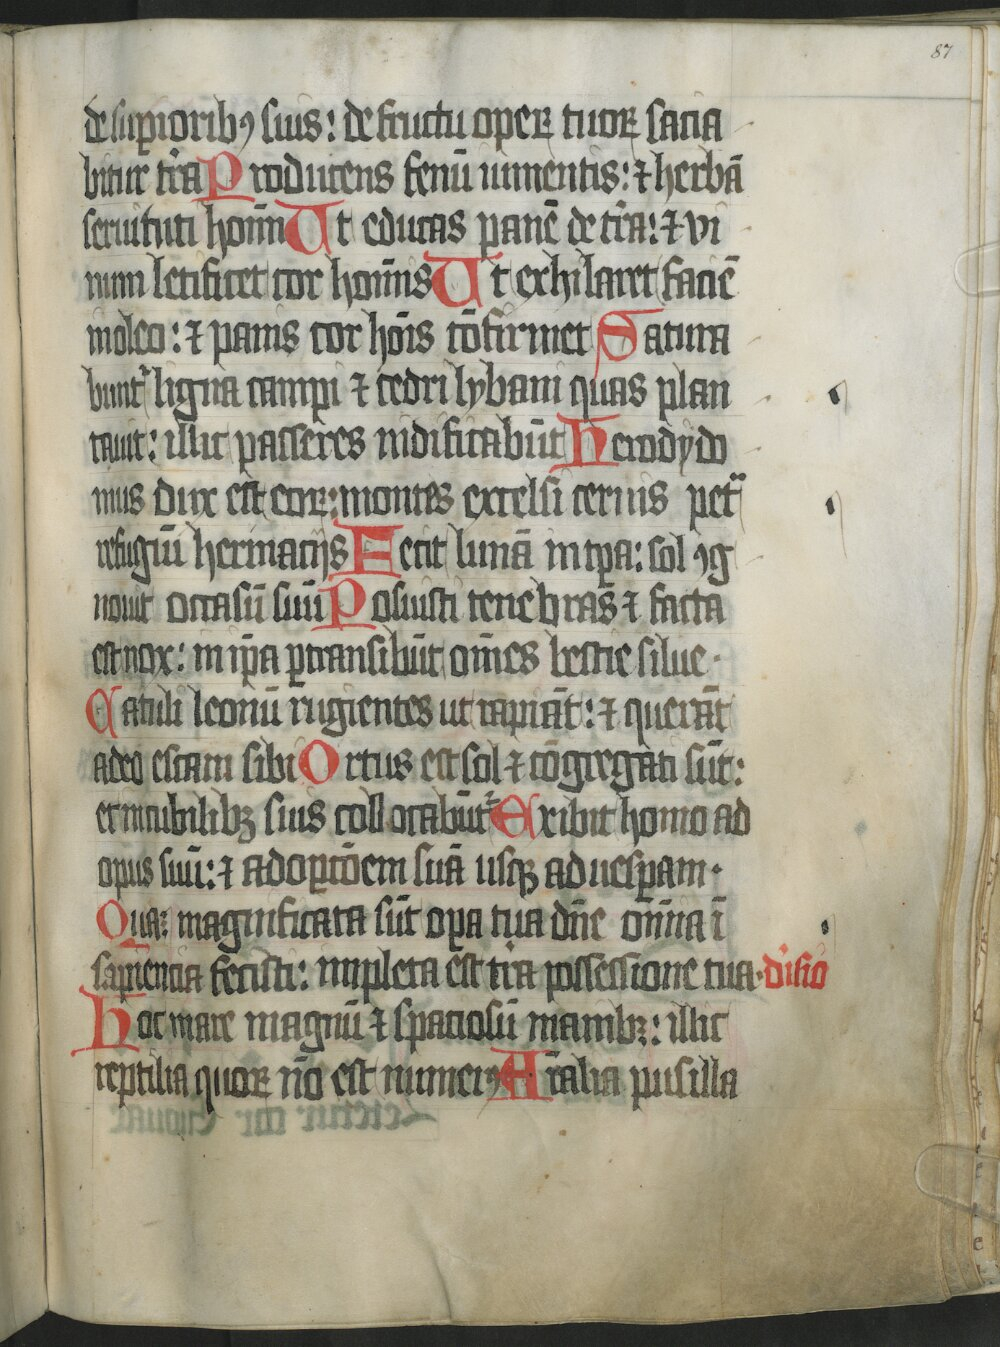 87
de suꝑioribꝯ suis: de fructu operꝝ tuoꝝ sacia
bitur tr̄a Producens fenū iumentis: ⁊ herbā
seruituti hoīm Ut educas panē de tr̄a: ⁊ vi
num letificet cor homīs Ut exhilaret faciē
in oleo: ⁊ panis cor hoīs cōfirmet Satura
bunt᷑ ligna campi ⁊ cedri lybani quas plan
tauit: illic passeres nidificabūt Herodij do
mus dux est eoꝝ: montes excelsi ceruis pet᷑
refugiū hermacijs Fecit lunā in tp̄a: sol ꝯg
nouit occasū suū Posuisti tenebras ⁊ facta
est nox: in ip̄a ꝑtransibūt om̄es bestie silue ·
Catuli leonū rugientes ut rapiāt: ⁊ querāt
a deo escam sibi Ortus est sol ⁊ cōgregati sūt:
et in cubilibꝫ suis collocabūt᷑ Exibit homo ad
opus suū: ⁊ ad oꝑacōem suā usqꝫ ad uesꝑam ·
Quā magnificata sūt oꝑa tua dn̄e om̄ia ī
sapiencia fecisti: impleta est tr̄a possessione tua · diuisio
Hoc mare magnū ⁊ spaciosū manibꝫ: illic
reptilia quoꝝ nō est numerꝯ Aīalia pusilla
Letetur cor